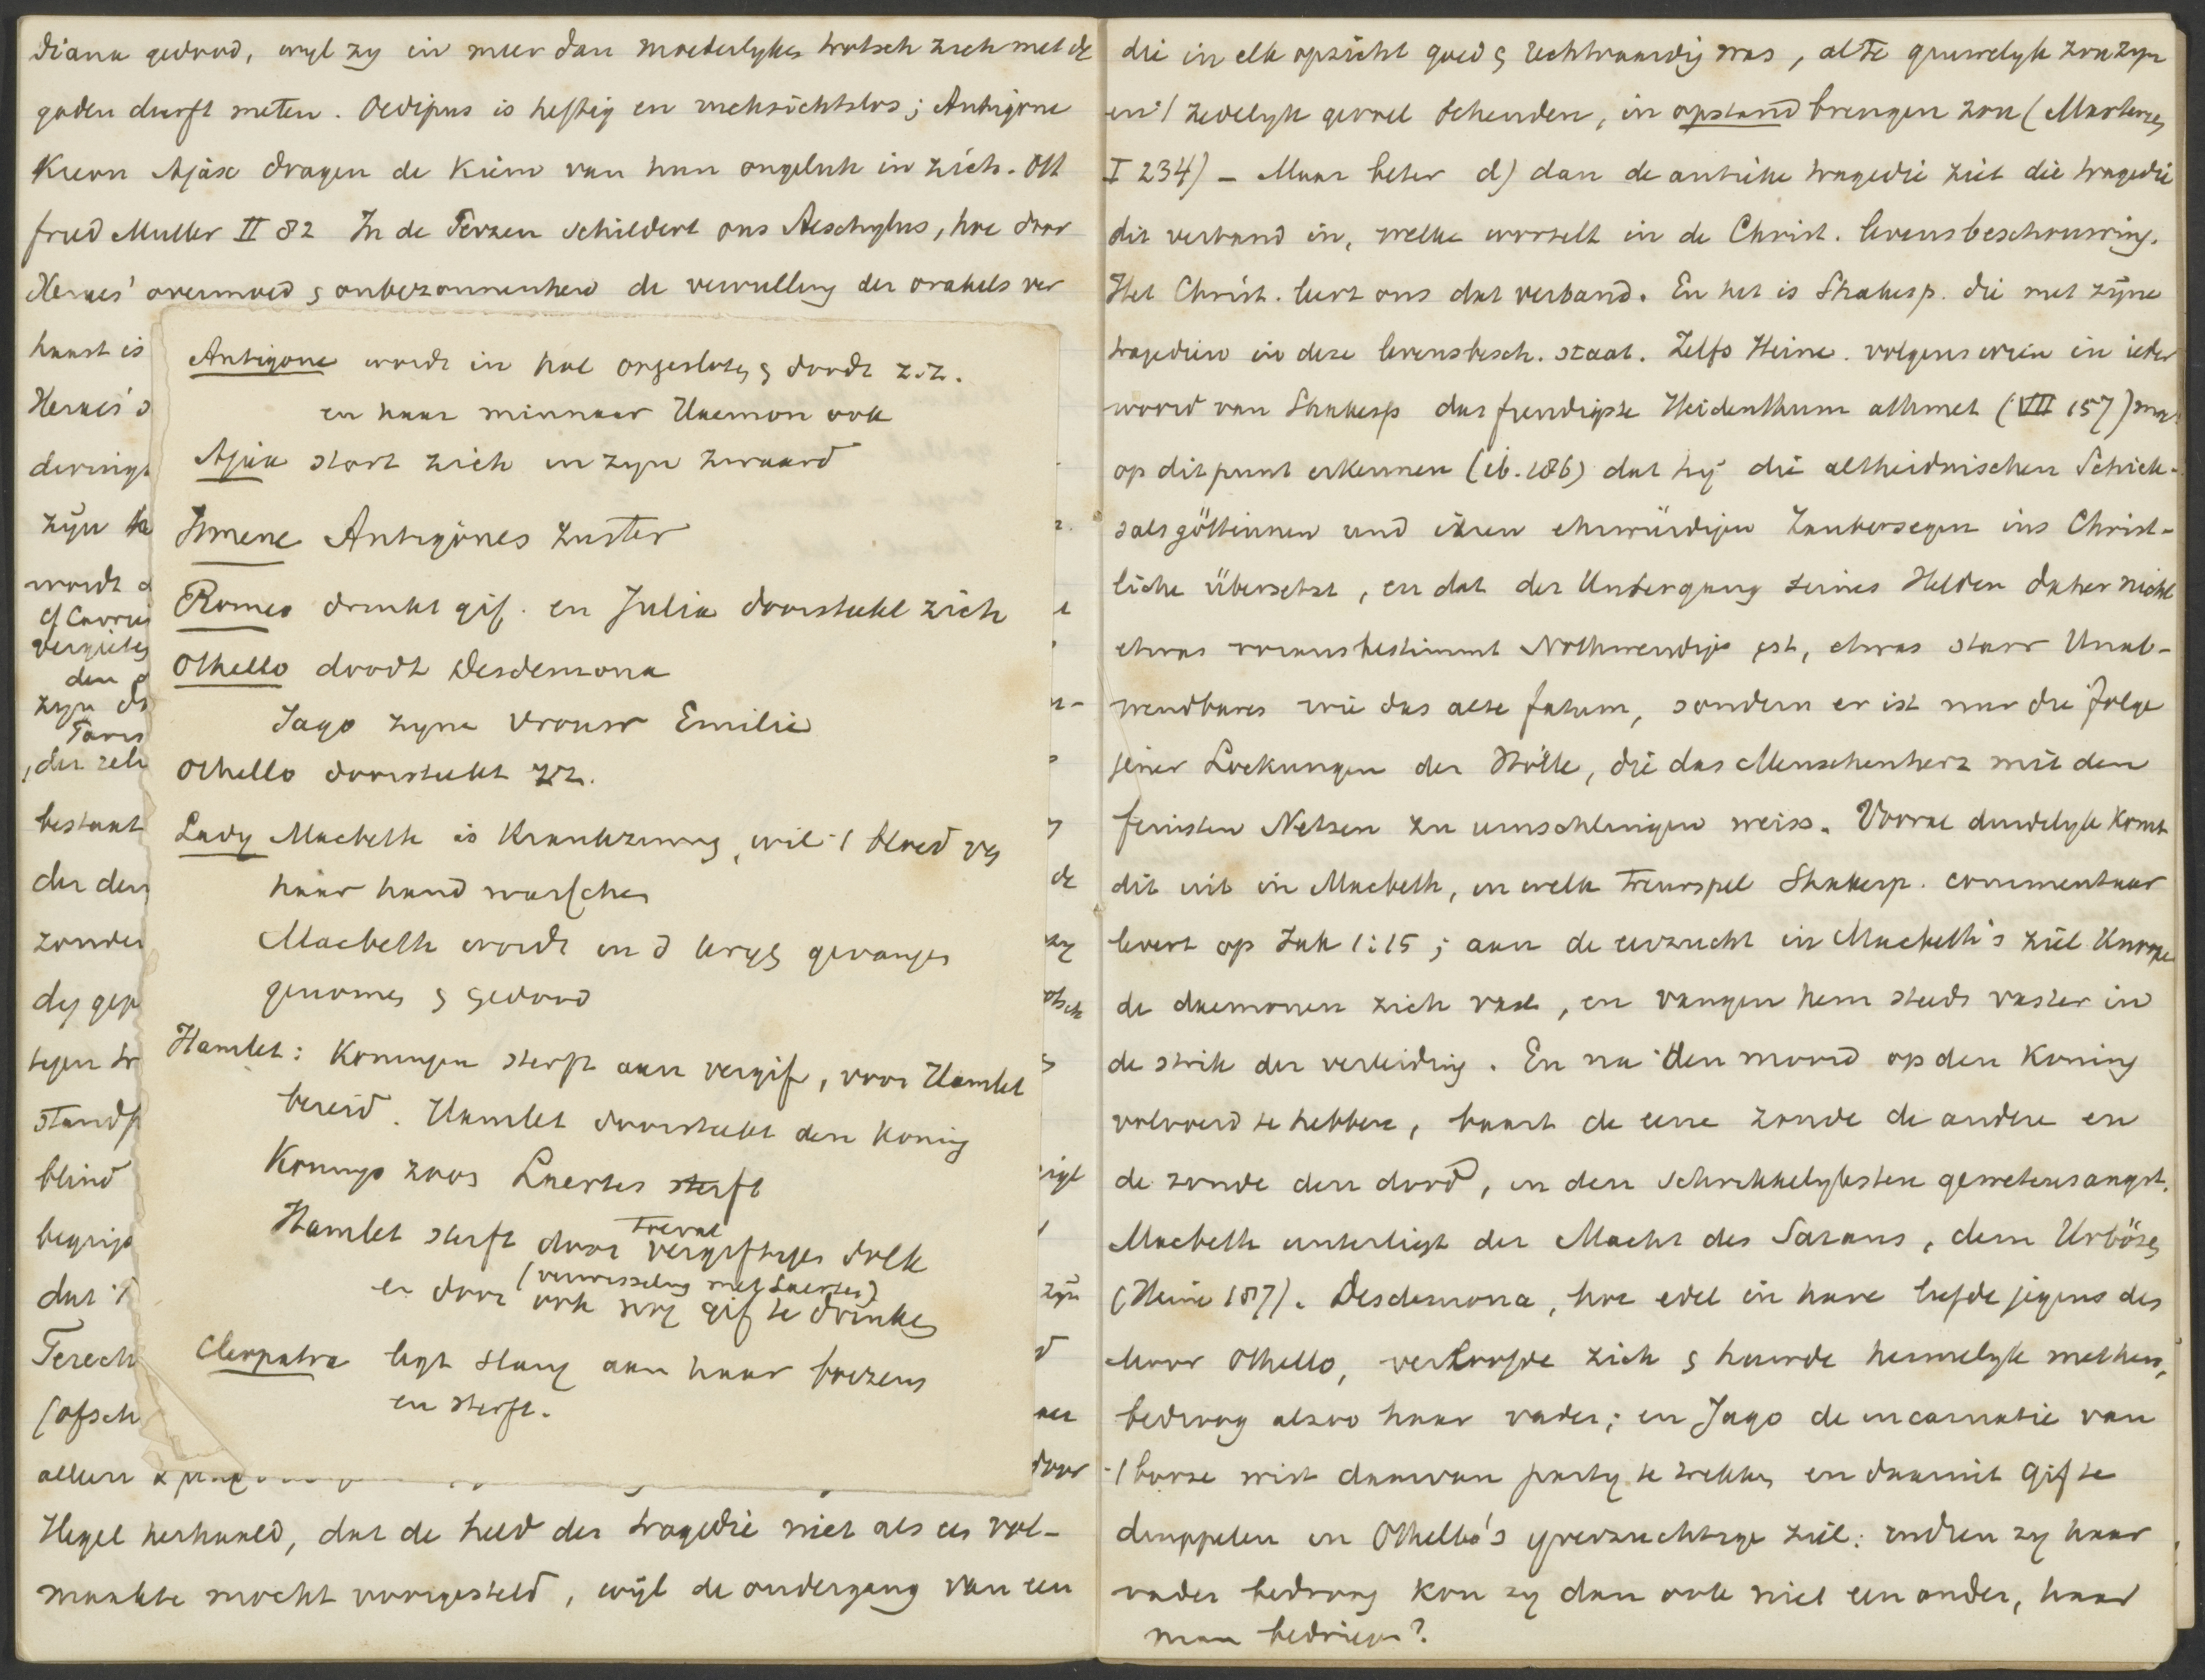 Diana gedood, wyl zy in meer dan moederlyke trotsch zich met de
goden durft meten. Oedipus is heftig en onvoorzichtig; Antigone
Kreon Ajax dragen de kiem van hun ongeluk in zich. Ott
fried Muller II 82 In de Perzen schildert ons Aeschylus, hoe door
Xerxes' overmoed & onbezonnenheid de vervulling der orakels ver
haast is
Xerxes'
zyn
wordt
den
zyn
bestaat
der den
zonder
tegen
stand
blind
dat 't
(ofsch
alleen
Antigone wordt in hol opgesloten & doodt z.z.
en haar minnaar Haemon ook
Ajax stort zich in zyn zwaard
Ismene Antigones zuster
Romeo drinkt gif. en Julia doorsteekt zich
Othello doodt Desdemona
Jago zyne vrouw Emilie
Othello doorsteekt z.z.
Lady Macbeth is krankzinnig, wil 't bloed v
haar hand wasschen
Macbeth wordt in d kryg gevangen
genomen & gedood
Hamlet: Koningin sterft aan vergif, voor Hamlet
bereid. Hamlet doorsteekt den koning
Konings zoon Laertes sterft
Hamlet sterft door toeval vergiftigen dolk
(verwisseling met Laertes)
en door ook nog gif te drinken
Cleopatra legt slang aan haar boezem
en sterft.
Hegel herhaald, dat de held der tragedie niet als een vol-
maakte mocht voorgesteld, wyl de ondergang van een
die in elk opzicht goed & rechtvaardig was, al te gruwelyk zou zyn
en 't zedelyk gevoel schenden, in opstand brengen zou (Martensen
I 234) - Maar beter d) dan de antieke tragedie ziet die tragedie
dit verband in, welke wortelt in de Christ. levensbeschouwing.
Het Christ. leert ons dat verband. En het is Shakesp. die met zyne
tragedien in deze levensbesch. staat. Zelfs Heine. volgens wien in ieder
woord van Shakesp das freudigste Heidenthum athmet (VII 157) moet
op dit punt erkennen (ib. 186) dat hy die altheidnischen Schick-
salsgöttinnen und ihren ehrwürdigen Zaubersegen ins Christ-
liche übersetzt, en dat der Untergang seines Helden daher nicht
etwas vorausbestimmt Nothwendiges ist, etwas starr Unab-
wendbares wie das alte fatum, sondern er ist nur die folge
jener Lockungen der Hölle, die das Menschenherz mit den
feinsten Netzen zu umschlingen weiss. Vooral duidelyk komt
dit uit in Macbeth, in welk treurspel Shakesp. commentaar
levert op Jak 1:15; aan de eerzucht in Macbeth's ziel knoopen
de daemonen zich vast, en vangen hem steeds vaster in
de strik der verleiding. En na den moord op den koning
volvoerd te hebben, baart de eene zonde de andere en
de zonde den dood, in den schrikkelyksten gewetensangst.
Macbeth unterliegt der Macht des Satans, dem Urbösen
(Heine 187). Desdemona, hoe edel in hare liefde jegens den
Moor Othello, verloofde zich & huwde heimelyk met hem,
bedroog alzoo haar vader; en Jago de incarnatie van
't booze wist daarvan party te trekken en daarmit gif te
druppelen in Othello's yverzuchtige ziel: indien zy haar
vader bedroog kon zy dan ook niet een ander, haar
man bedriegen?